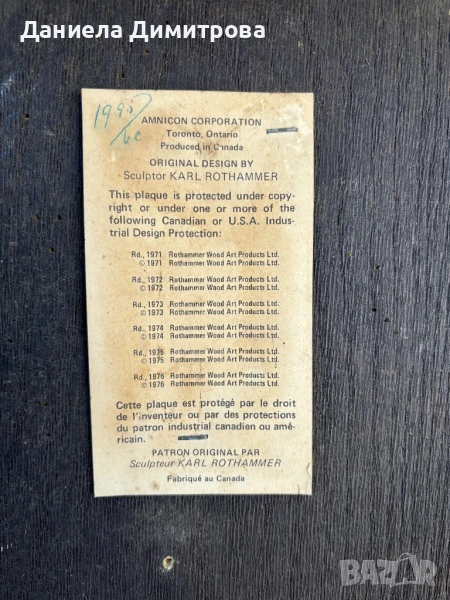 Даниела Димитрова
1995/
6c
AMNICON CORPORATION
Toronto, Ontario
Produced in Canada
ORIGINAL DESIGN BY
Sculptor KARL ROTHAMMER
This plaque is protected under copy-
right or under one or more of the
following Canadian or U.S.A. Indus-
trial Design Protection:
Rd., 1971 Rothammer Wood Art Products Ltd.
© 1971 Rothammer Wood Art Products Ltd.
Rd., 1972 Rothammer Wood Art Products Ltd.
© 1972 Rothammer Wood Art Products Ltd.
Rd., 1973 Rothammer Wood Art Products Ltd.
© 1973 Rothammer Wood Art Products Ltd.
Rd., 1974 Rothammer Wood Art Products Ltd.
© 1974 Rothammer Wood Art Products Ltd.
Rd., 1975 Rothammer Wood Art Products Ltd.
© 1975 Rothammer Wood Art Products Ltd.
Rd., 1976 Rothammer Wood Art Products Ltd.
© 1976 Rothammer Wood Art Products Ltd.
Cette plaque est protégé par le droit
de l'inventeur ou par des protections
du patron industrial canadien ou amé-
ricain.
PATRON ORIGINAL PAR
Sculpteur KARL ROTHAMMER
Fabriqué au Canada
BAZAR